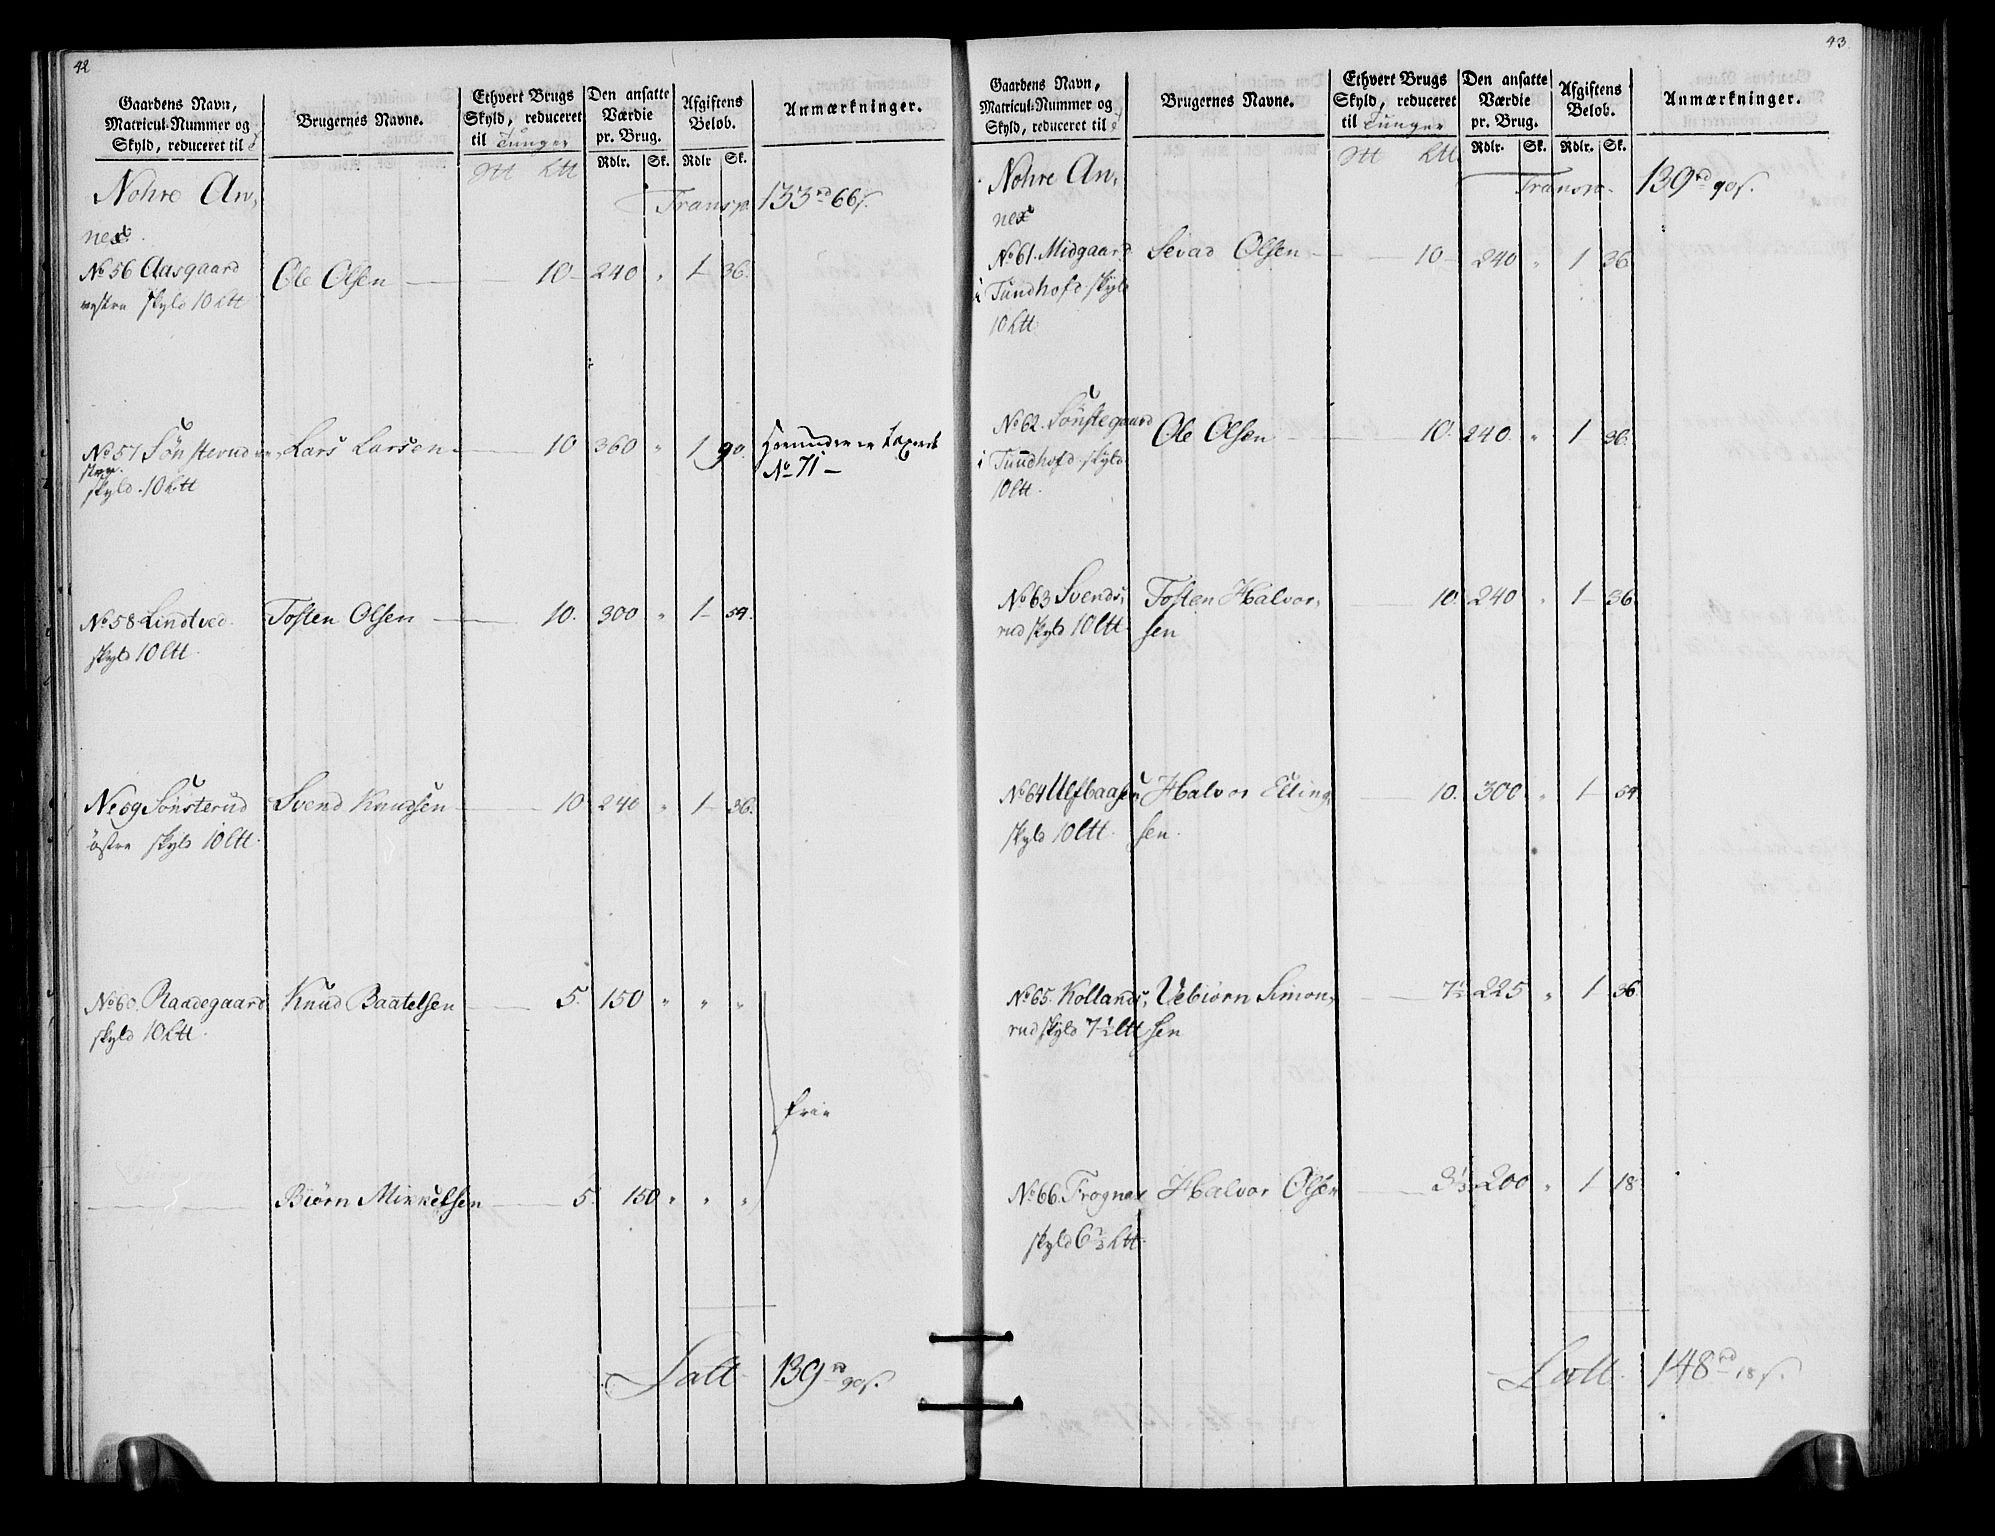 42
Gaardens Navn, Matricul-Nummer og Skyld, reduceret til
Brugernes Navne.
Ethvert Brugs Skyld, reduceret til Tunger
Den ansatte Værdie pr. Brug.
Afgiftens Beløb.
Anmærkninger.
Rdlr. Sk. Rdlr Sk.
Nohre An,
nex.
Transp. 133 rd 66 s.
No 56 Aasgaard Ole Olsen 10 240 " 1 36.
vestre skyld 10 Ltt
No 57 Sønsterud Lars Larsen 10 360 " 1 90. Herunder er Taxeret
skyld 10 Ltt No 71
No 58 Lindtved Tosten Olsen 10. 300 " 1 54.
skyld 10 Ltt.
No 59 Sønsterud Svend Knudsen 10 240 " 1 36.
østre skyld 10 Ltt.
No 60. Raadegaard Knud Baatelsen 5. 150 " " "
skyld 10 Ltt.
frie
Biørn Mikkelsen 5. 150 " " "
Latt 139 rd 90 s.
43.
Gaardens Navn, Matricul-Nummer og Skyld, reduceret til
Brugernes Navne.
Ethvert Brugs Skyld, reduceret til Tunger
Den ansatte Værdie pr. Brug.
Afgiftens Beløb.
Anmærkninger.
Rdlr. Sk. Rdlr. Sk.
Nohre An,
nex
Transp. 139 rd 90 s.
No 61. Midgaard Sevad Olsen 10 240 " 1 36.
i Tundhofd skyld
10 Ltt
No 62. Sønstegaard Ole Olsen 10. 240. " 1 36.
i Tundhofd skyld
10 Ltt.
No 63 Svends, Tosten Halvor, 10. 240 " 1 36.
rud skyld 10 Ltt. sen
No 64 Ulfbaasen Halvor Elling, 10. 300 " 1 54.
skyld 10 Ltt. sen.
No 65. Kollands, Vebiørn Simon, 7½ 225 " 1 36.
rud skyld 7½ Ltt sen
No 66. Frogner Halvor Olsen 200 " 1 18.
skyld 6⅔ Ltt.
Latt. 148 rd 18 s.